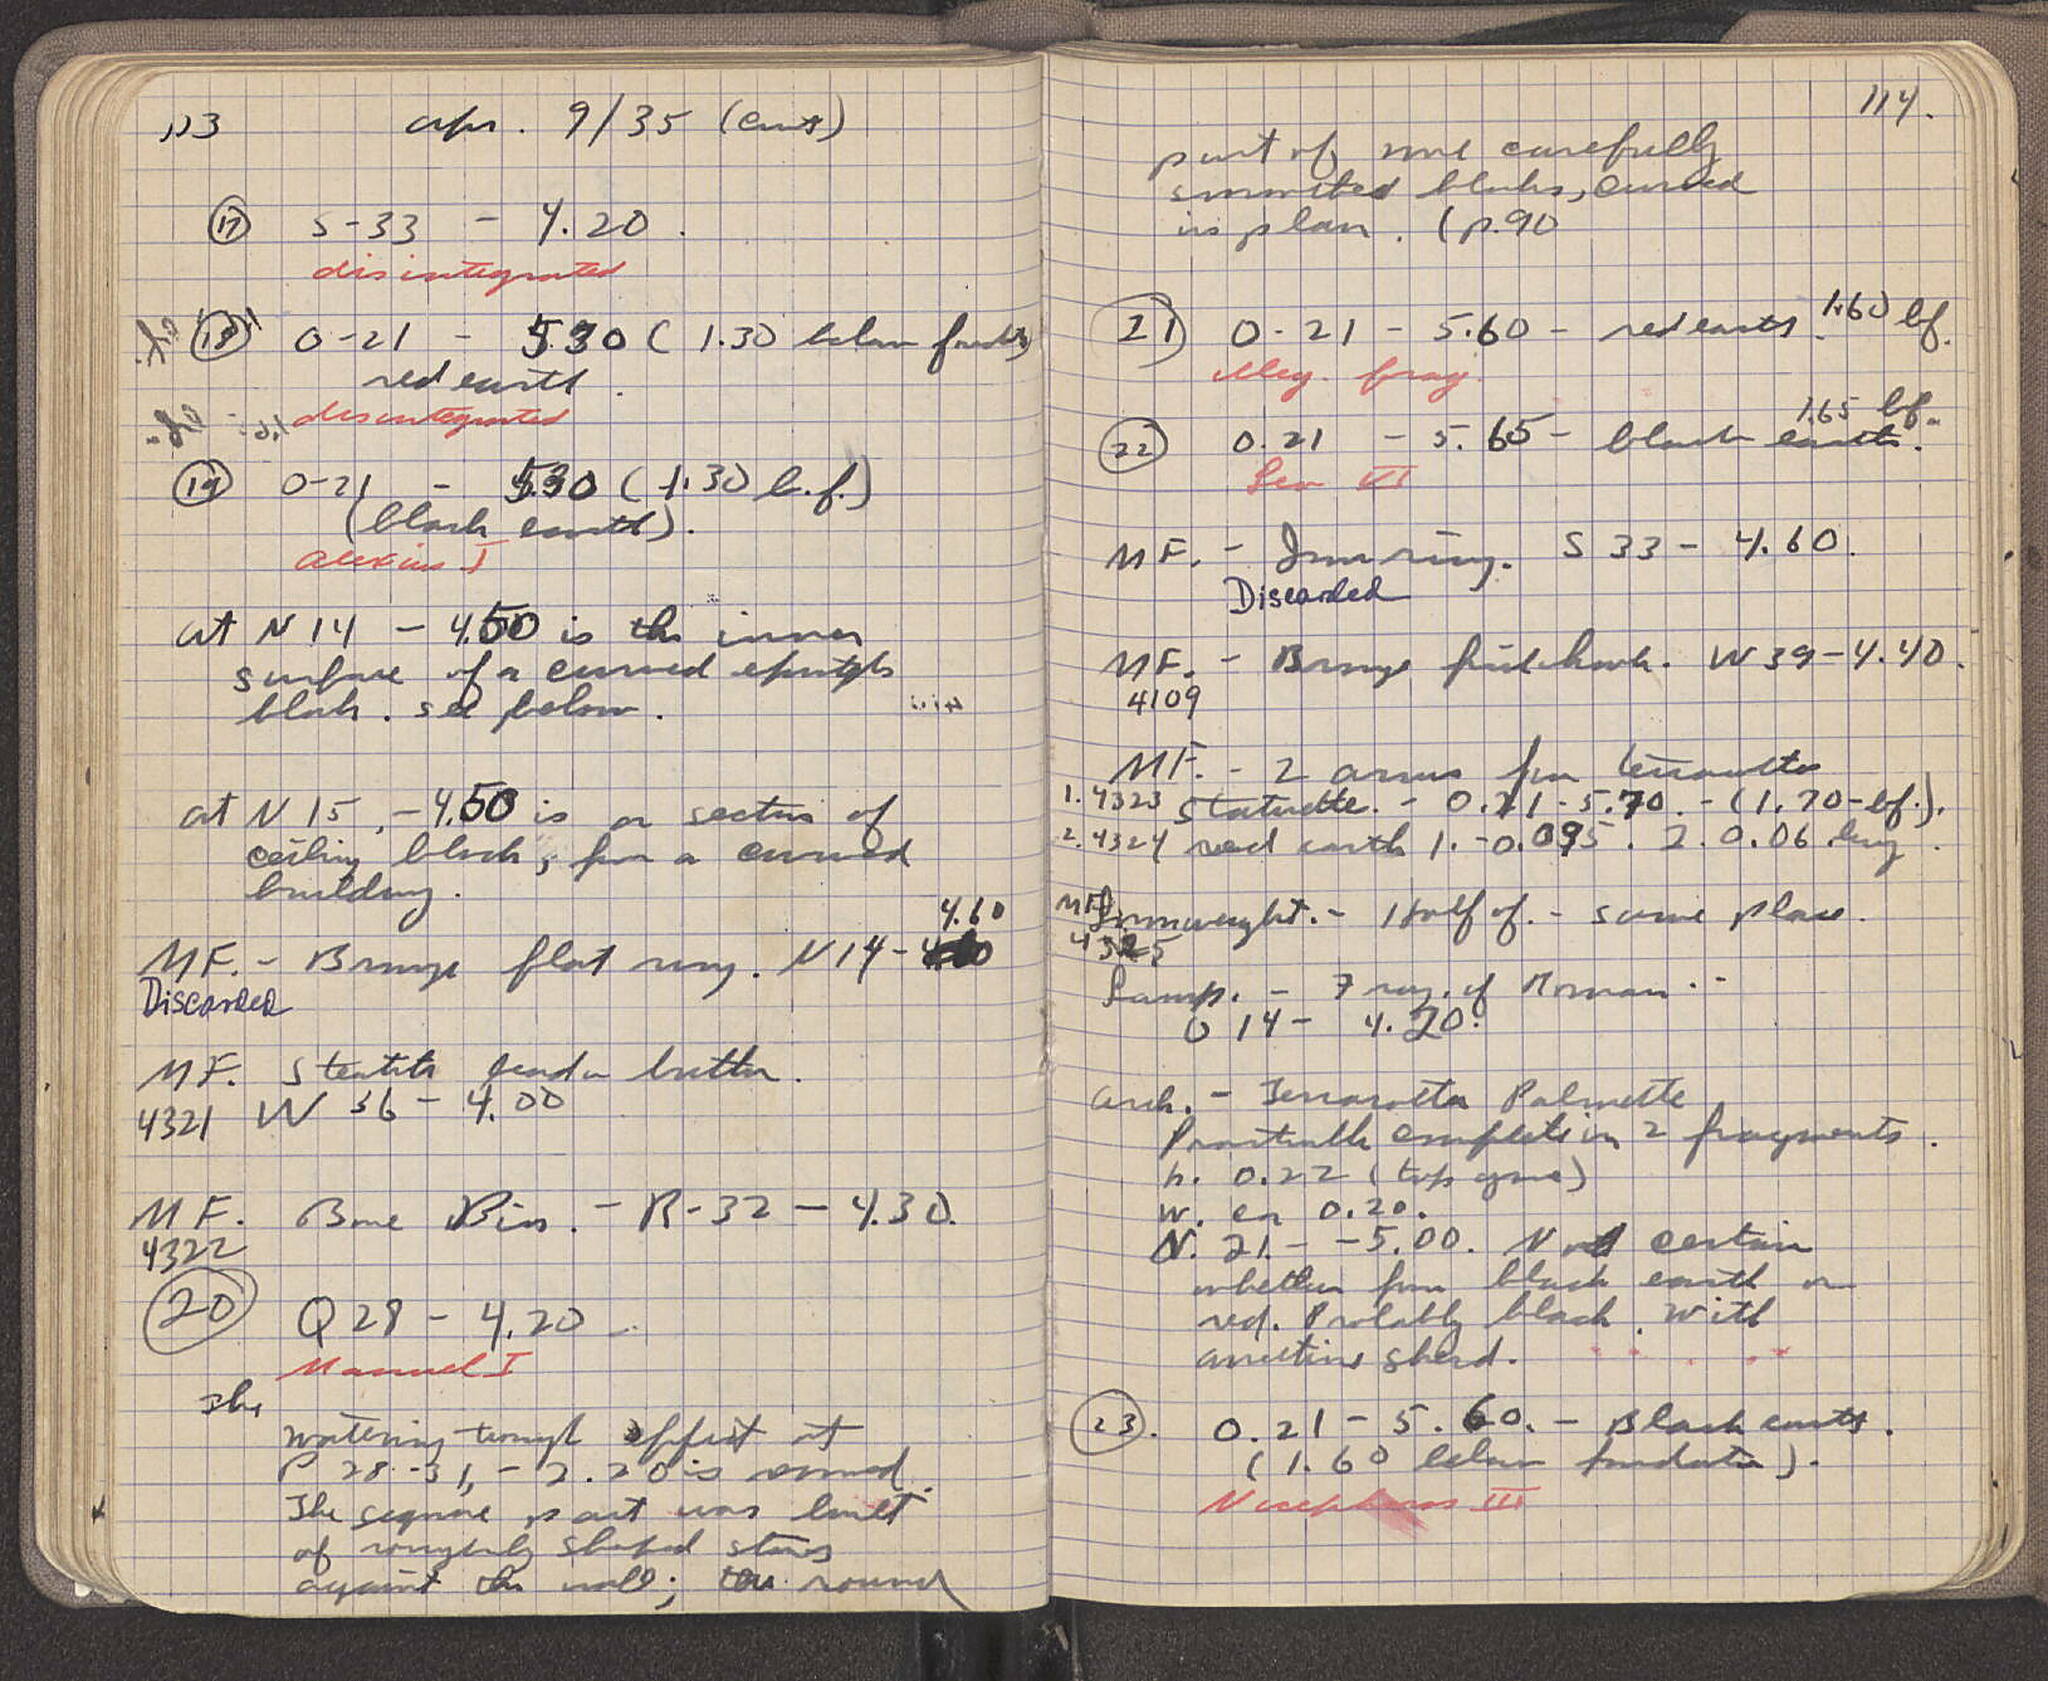 113 Apr. 9/35 (Cont)
17 S-33 - 4.20.
disintegrated
18 O-21 - 5.30 (1.30 below foundts)
red earth.
disintegrated
19 O-21 - 5.30 (1.30 b.f.)
(black earth).
Alexius I
At N 14 - 4.50 is the inner
surface of a curved
block. see below.
At N 15, -4.50 is a section of
ceiling block, from a curved
building.
4.60
MF. - Bronze flat ring. N 14 -
Discarded
MF. Steatite bead or button.
4321 W 36 - 4.00
MF. Bone Pin. - R-32 - 4.30.
4322
20 Q 28 - 4.20
Manuel I
The
watering trough effect at
P 28-31, - 2.20 is removed.
The square part was built
of roughly shaped stones
against the wall; the round
114.
part of more carefully
smoothed blocks, curved
in plan. (p.90
21 O-21 - 5.60 - red earth. 1.60 bf.
Illeg. frag.
22 O.21 - 5.65 - black earth. 1.65 bf.
Leo VI
MF. - Iron ring. S 33 - 4.60.
Discarded
MF. - Bronze fishhook. W 39 - 4.40.
4109
MF. - 2 arms from terracotta
1. 4323 statuette. - O.21 - 5.70. - (1.70 - bf.).
2. 4324 red earth 1. - 0.095. 2. 0.06 long.
MF Loomweight. - Half of. - same place.
4325
Lamp. - Frag. of Roman. -
O 14 - 4.20.
Arch. - Terracotta Palmette
Practically complete in 2 fragments.
h. 0.22 (top gone)
W. ca 0.20.
N. 21 - -5.00. Not certain
whether from black earth or
red. Probably black. With
arretine sherd.
23. O.21 - 5.60. - Black earth.
(1.60 below foundation).
Nicephorus III